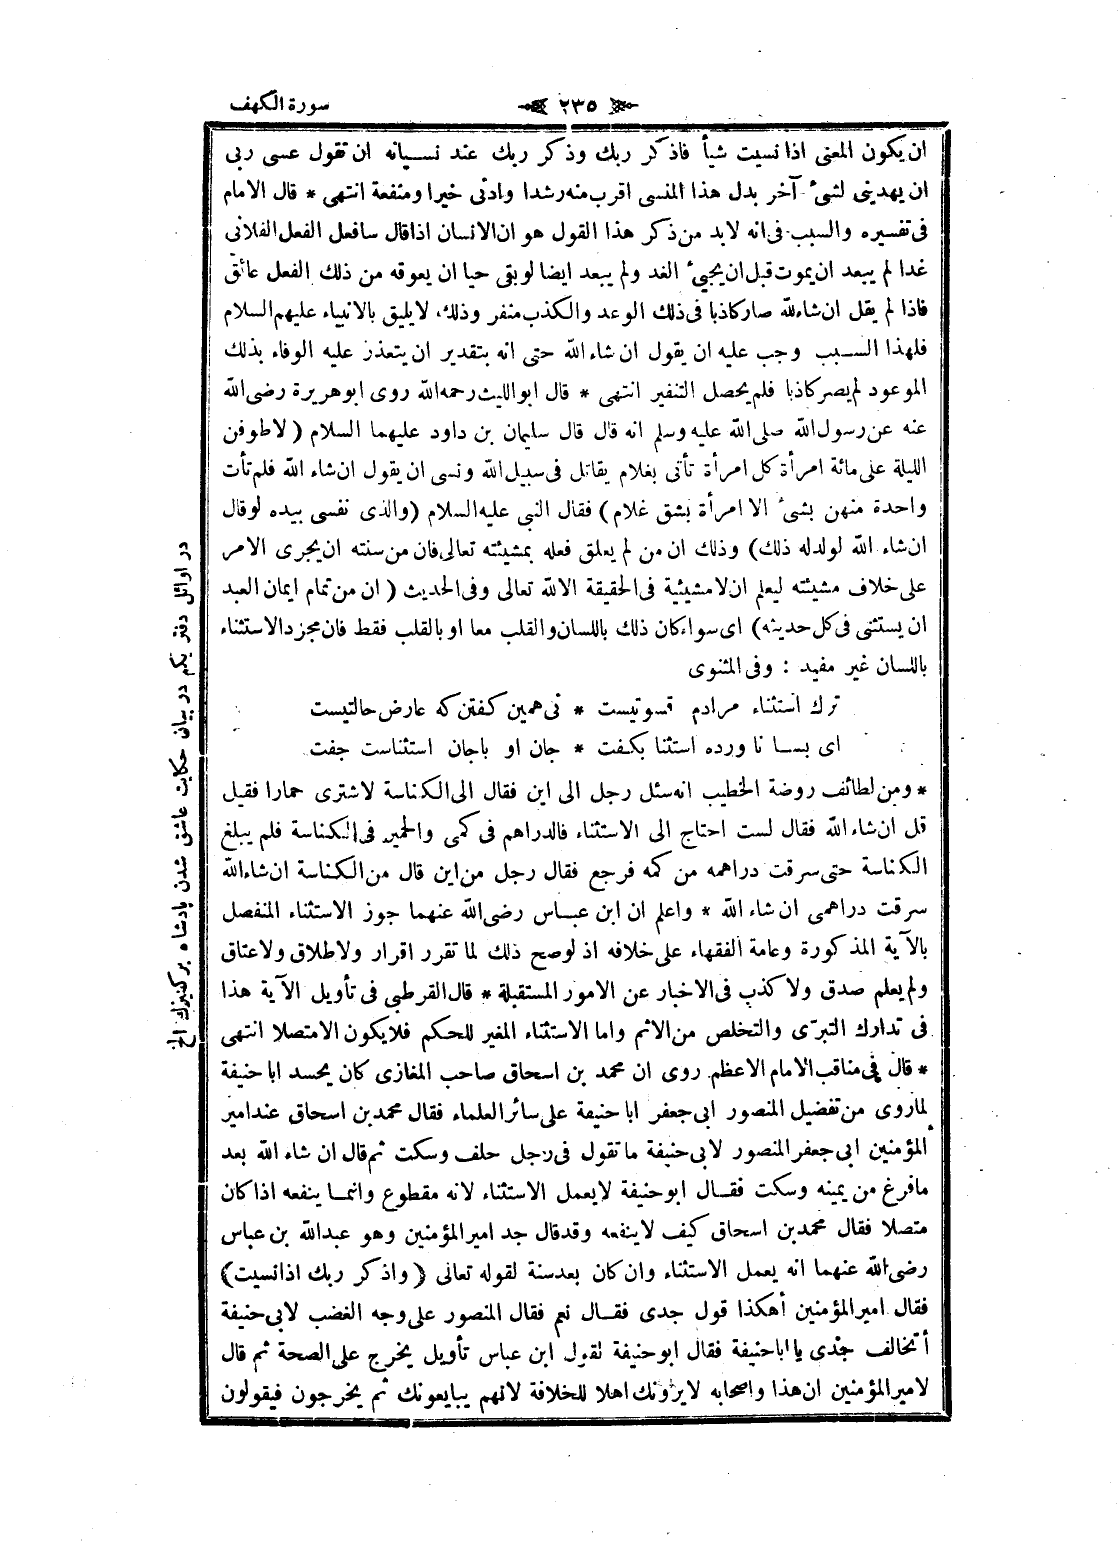 سورة الكهف
٢٣٥
ان يكون المعنى اذا نسيت شيأ فاذكر ربك وذكر ربك عند نسيانه ان تقول عسى ربى
ان يهدينى لشىء آخر بدل هذا المنسى اقرب منه رشدا وادنى خيرا ومنفعة انتهى * قال الامام
فى تفسيره والسبب فى انه لابد من ذكر هذا القول هو ان الانسان اذا قال سافعل الفعل الفلانى
غدا لم يبعد ان يموت قبل ان يجيء الغد ولم يبعد ايضا لو بقى حيا ان يعوقه من ذلك الفعل عائق
فاذا لم يقل ان شاء لله صار كاذبا فى ذلك الوعد والكذب منفر وذلك لا يليق بالانبياء عليهم السلام
فلهذا السبب وجب عليه ان يقول ان شاء الله حتى انه بتقدير ان يتعذر عليه الوفاء بذلك
الموعود لم يصر كاذبا فلم يحصل التنفير انتهى * قال ابو الليث رحمه الله روى ابو هريرة رضى الله
عنه عن رسول الله صلى الله عليه وسلم انه قال قال سليمان بن داود عليهما السلام ( لاطوفن
الليلة على مائة امرأة كل امرأة تأتى بغلام يقاتل فى سبيل الله ونسى ان يقول ان شاء الله فلم تأت
واحدة منهن بشىء الا امرأة بشق غلام ) فقال النبى عليه السلام ( والذى نفسى بيده لو قال
ان شاء الله لولد له ذلك ) وذلك ان من لم يعلق فعله بمشيئته تعالى فان من سنته ان يجرى الامر
على خلاف مشيئته ليعلم ان لا مشيئية فى الحقيقة الا لله تعالى وفى الحديث ( ان من تمام ايمان العبد
ان يستثنى فى كل حديثه ) اى سواء كان ذلك باللسان والقلب معا او بالقلب فقط فان مجرد الاستثناء
باللسان غير مفيد : وفى المثنوى
ترك استثناء مرادم قسوتيست * نى همين كفتن كه عارض حالتيست
اى بسا نا ورده استثنا بكفت * جان او با جان استثناست جفت
* ومن لطائف روضة الخطيب انه سئل رجل الى اين فقال الى الكناسة لاشترى حمارا فقيل
قل ان شاء الله فقال لست احتاج الى الاستثناء فالدراهم فى كمى والحمير فى الكناسة فلم يبلغ
الكناسة حتى سرقت دراهمه من كمه فرجع فقال رجل من اين قال من الكناسة ان شاء الله
سرقت دراهمى ان شاء الله * واعلم ان ابن عباس رضى الله عنهما جوز الاستثناء المنفصل
بالآية المذكورة وعامة الفقهاء على خلافه اذ لو صح ذلك لما تقرر اقرار ولا طلاق ولا عتاق
ولم يعلم صدق ولا كذب فى الاخبار عن الامور المستقبلة * قال القرطبى فى تأويل الآية هذا
فى تدارك التبرى والتخلص من الاثم واما الاستثناء المغير للحكم فلا يكون الا متصلا انتهى
* قال فى مناقب الامام الاعظم روى ان محمد بن اسحاق صاحب المغازى كان يحسد ابا حنيفة
لما روى من تفضيل المنصور ابى جعفر ابا حنيفة على سائر العلماء فقال محمد بن اسحاق عند امير
المؤمنين ابى جعفر المنصور لابى حنيفة ما تقول فى رجل حلف وسكت ثم قال ان شاء الله بعد
ما فرغ من يمينه وسكت فقال ابو حنيفة لا يعمل الاستثناء لانه مقطوع وانما ينفعه اذا كان
متصلا فقال محمد بن اسحاق كيف لا ينفعه وقد قال جد امير المؤمنين وهو عبد الله بن عباس
رضى الله عنهما انه يعمل الاستثناء وان كان بعد سنة لقوله تعالى ( واذكر ربك اذا نسيت )
فقال امير المؤمنين أهكذا قول جدى فقال نعم فقال المنصور على وجه الغضب لابى حنيفة
أتخالف جدى يا ابا حنيفة فقال ابو حنيفة لقول ابن عباس تأويل يخرج على الصحة ثم قال
لامير المؤمنين ان هذا واصحابه لا يرونك اهلا للخلافة لانهم يبايعونك ثم يخرجون فيقولون
در اوائل دفتر يكم در بيان حكايت عاشق شدن پادشاه بر كنيزك الخ